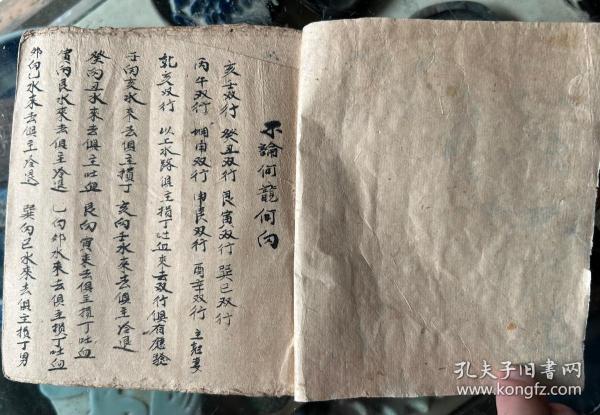 不論何龍何向
亥壬双行 癸丑双行 艮寅双行 巽巳双行
丙午双行 坤申双行 申艮双行 酉辛双行 主冠妻
乾亥双行 以上水路俱主損丁吐血來去双行俱有應驗
壬向亥水來去俱主損丁 亥向壬水來去俱主冷退
癸向丑水來去俱主吐血 艮向寅來去俱主損丁吐血
寅向艮水來去俱主冷退 乙向卯水來去俱主損丁吐血
卯向乙水來去俱主冷退 巽向巳水來去俱主損丁男
孔夫子旧书网
www.kongfz.com